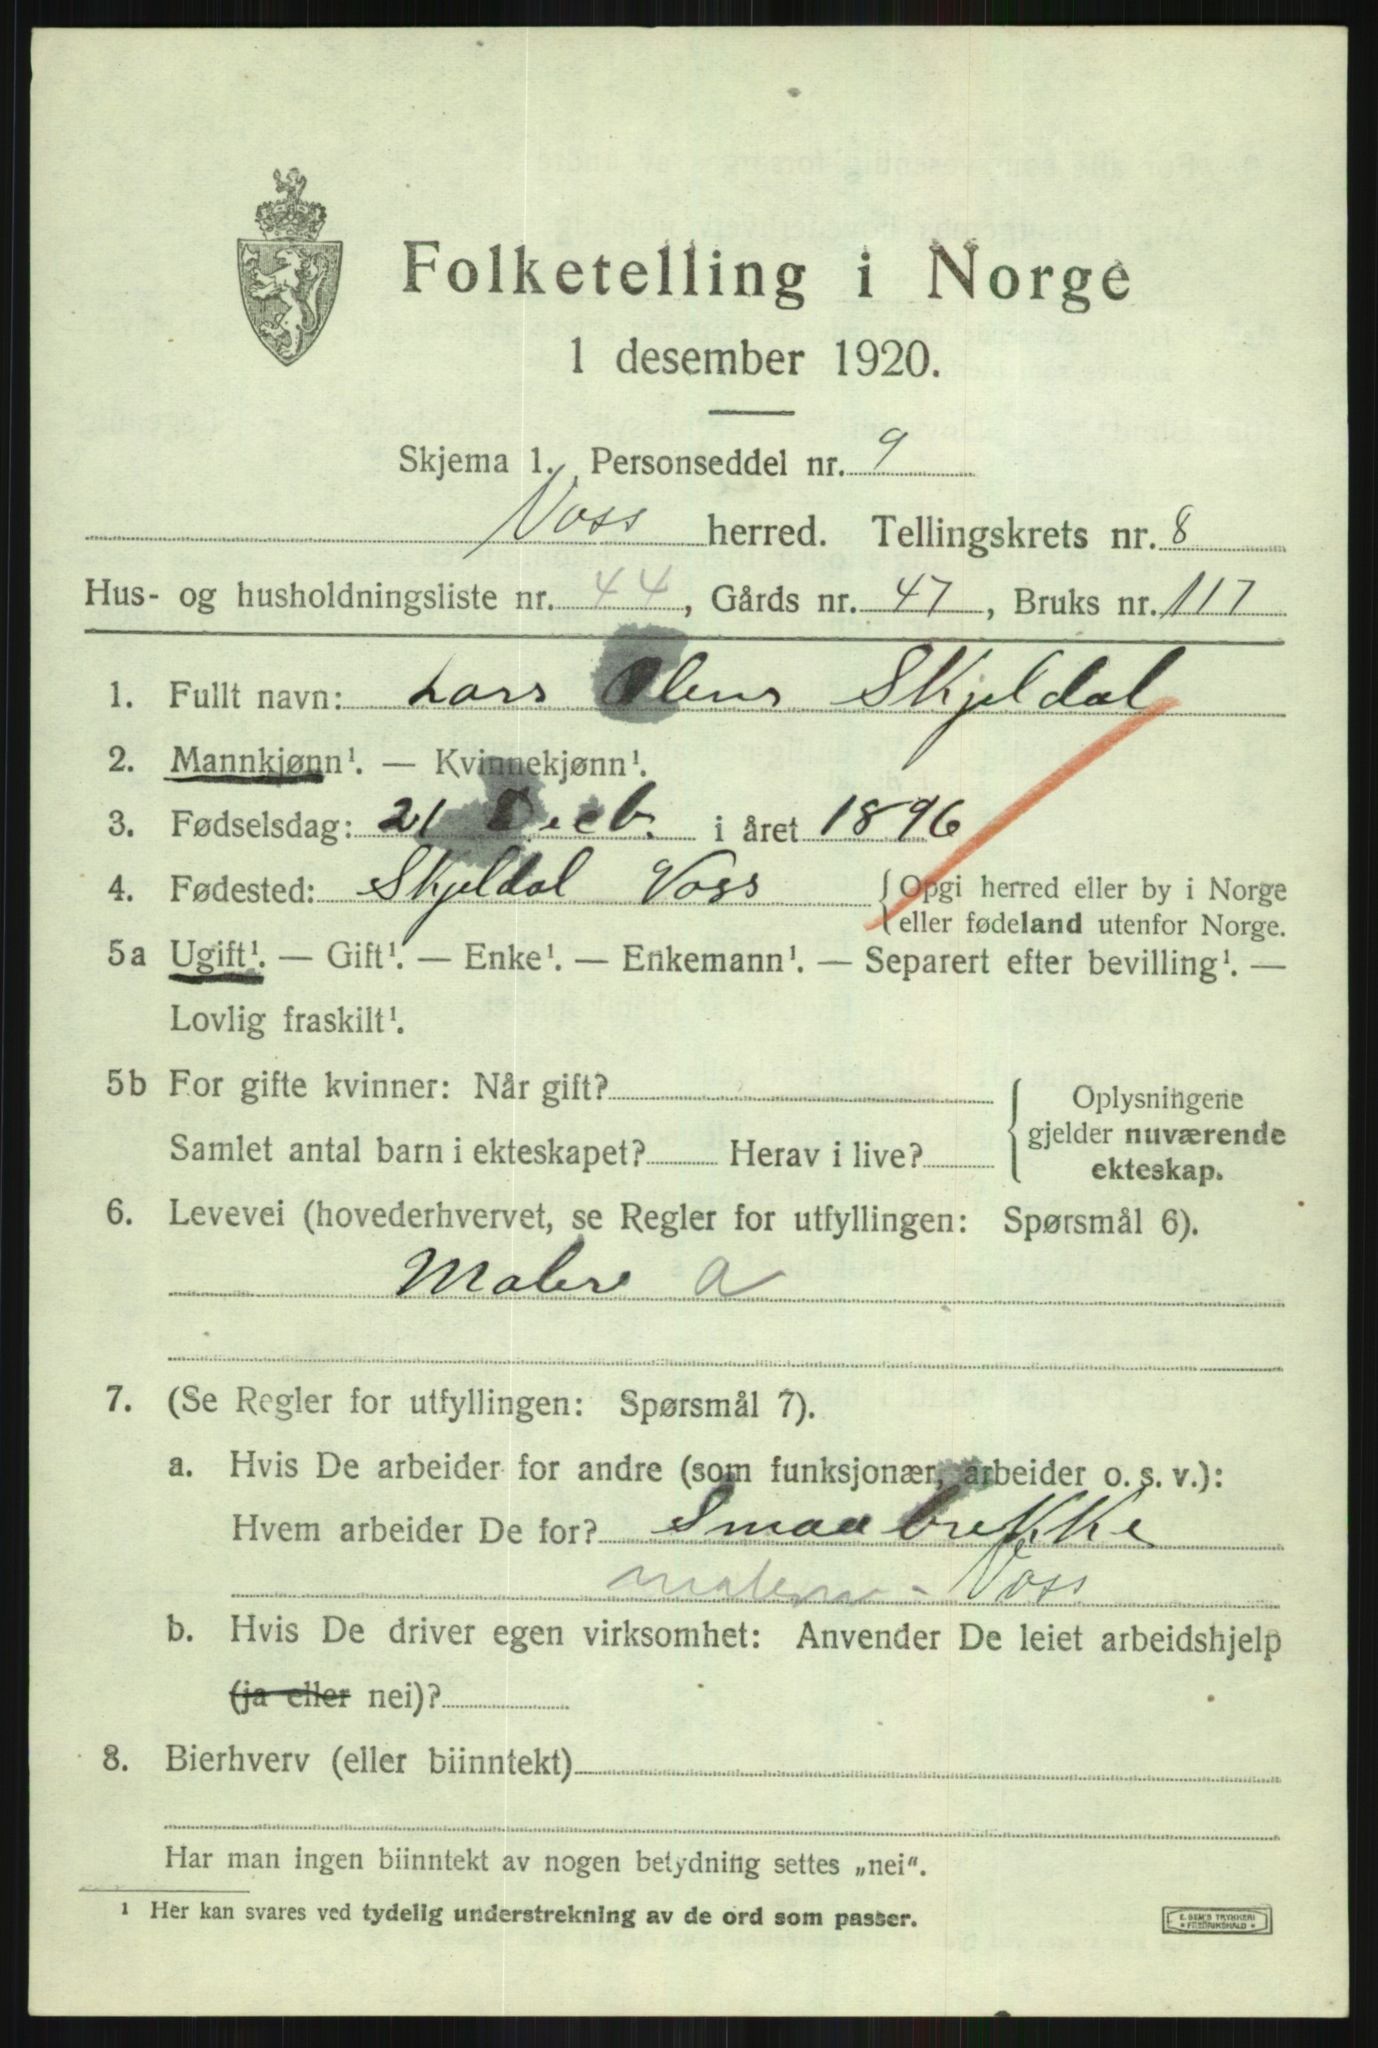 Folketelling i Norge
1 desember 1920.
Skjema 1. Personseddel nr. 9
Voss herred. Tellingskrets nr. 8
Hus- og husholdningsliste nr. 44, Gårds nr. 47, Bruks nr. 117
1. Fullt navn: Lars Olens Skjeldal
2. Mannkjønn¹. — Kvinnekjønn¹.
3. Fødselsdag: 21 Decb. i året 1896
4. Fødested: Skjeldal Voss {Opgi herred eller by i Norge
eller fødeland utenfor Norge.
5a Ugift¹. — Gift¹. — Enke¹. — Enkemann¹. — Separert efter bevilling¹. —
Lovlig fraskilt¹.
5b For gifte kvinner: Når gift?
Samlet antal barn i ekteskapet? Herav i live?
{Oplysningene
gjelder nuværende
ekteskap.
6. Levevei (hovederhvervet, se Regler for utfyllingen: Spørsmål 6).
Maler a
7. (Se Regler for utfyllingen: Spørsmål 7).
a. Hvis De arbeider for andre (som funksjonær, arbeider o. s. v.):
Hvem arbeider De for? Smaabrekke
- Voss
b. Hvis De driver egen virksomhet: Anvender De leiet arbeidshjelp
(ja eller nei)?
8. Bierhverv (eller biinntekt)
Har man ingen biinntekt av nogen betydning settes „nei“.
¹ Her kan svares ved tydelig understrekning av de ord som passer.
E. SEM'S TRYKKERI
FREDRIKSHALD